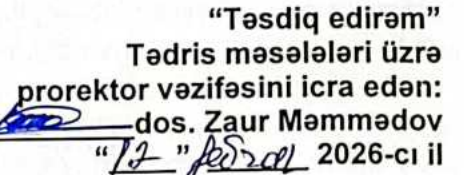 “Təsdiq edirəm”
Tədris məsələləri üzrə
prorektor vəzifəsini icra edən:
dos. Zaur Məmmədov
“12” fevral 2026-cı il